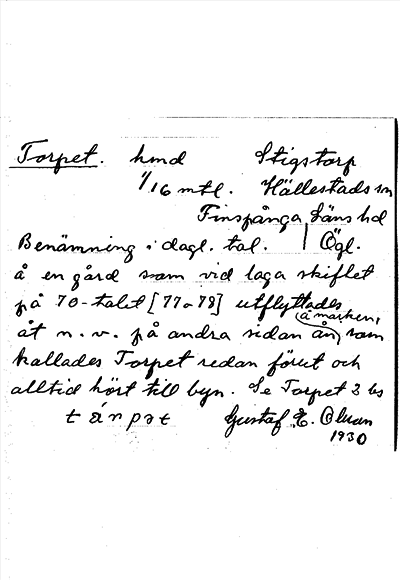 Torpet. hmd Stigstorp
1/16 mtl. Hällestads sn
Finspånga läns hd
Benämning i dagl. tal. Ögl.
å en gård som vid laga skiftet
på 70-talet [77 o 78] utflyttades
åt n. v. på andra sidan ån (å marken, som
kallades Torpet redan förut och
alltid hört till byn. Se Torpet 3 bs
Gustaf E. Olsson
1930